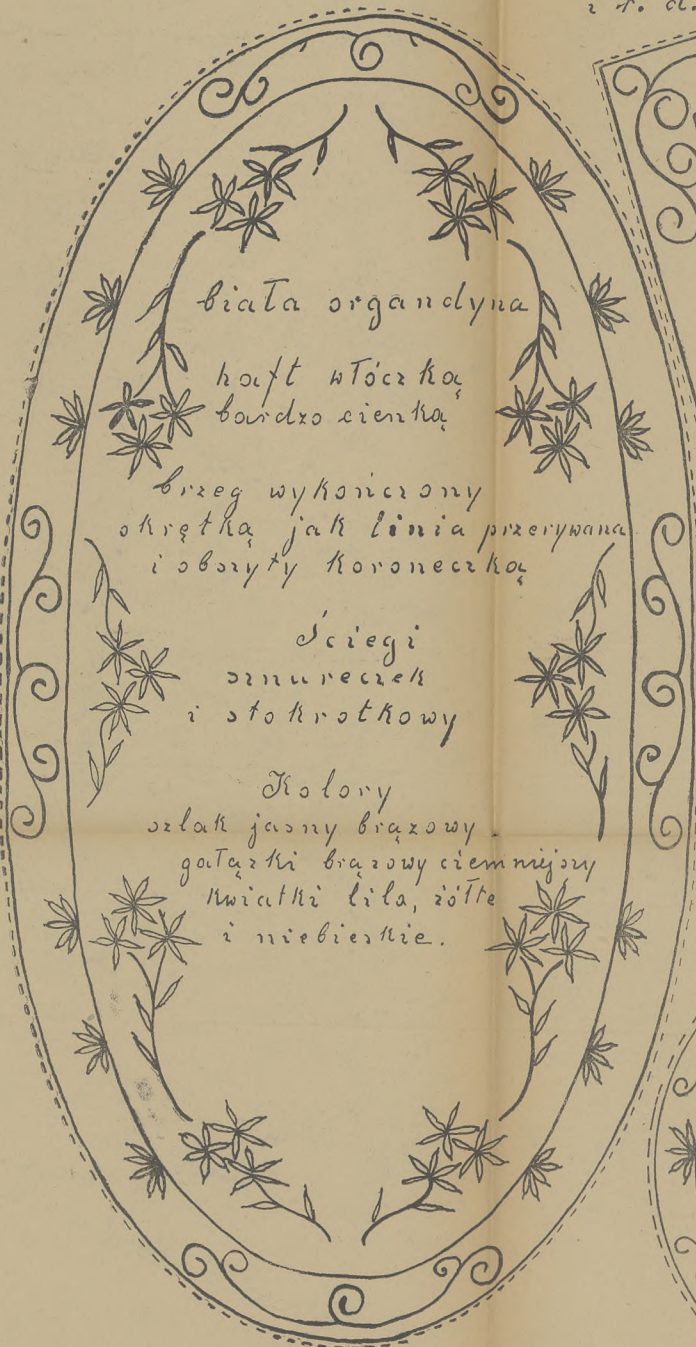 i t. d.
biała organdyna
haft włóczką
bardzo cienką
brzeg wykończony
okrętką jak linia przerywana
i obszyty koroneczką
Ściegi
sznureczek
i stokrotkowy
Kolory
szlak jasny brązowy
gałązki brązowy ciemniejszy
kwiatki lila, żółte
i niebieskie.